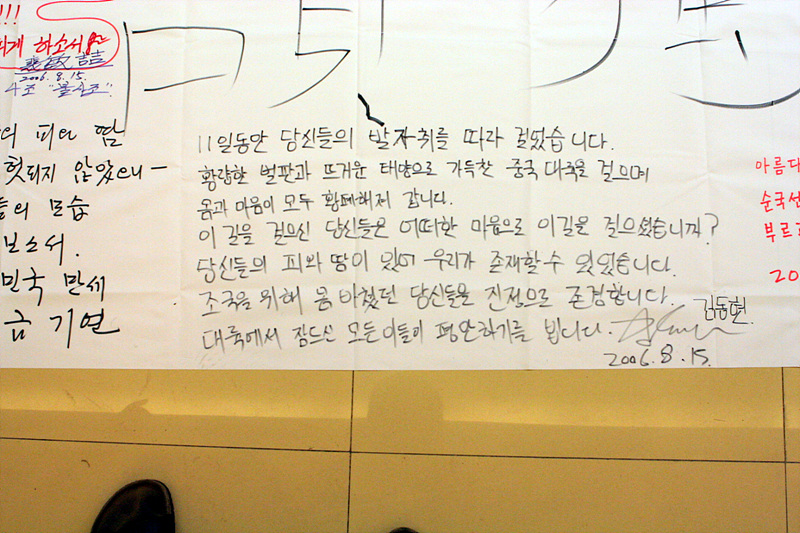 !!!
하소서
2006. 8. 15.
4조
피와 땀
헛되지 않았으니 ~
모습
보소서.
민국 만세
금 기연
11일동안 당신들의 발자취를 따라 걸었습니다.
황량한 벌판과 뜨거운 태양으로 가득찬 중국 대륙을 걸으며
몸과 마음이 모두 황폐해져 갑니다.
이 길을 걸으신 당신들은 어떠한 마음으로 이길을 걸으셨습니까?
당신들의 피와 땀이 있어 우리가 존재할 수 있었습니다.
조국을 위해 몸 바쳤던 당신들을 진정으로 존경합니다.
대륙에서 잠드신 모든이들이 평안하기를 빕니다.
김동현.
2006. 8. 15.
아름다
순국선
부르
20